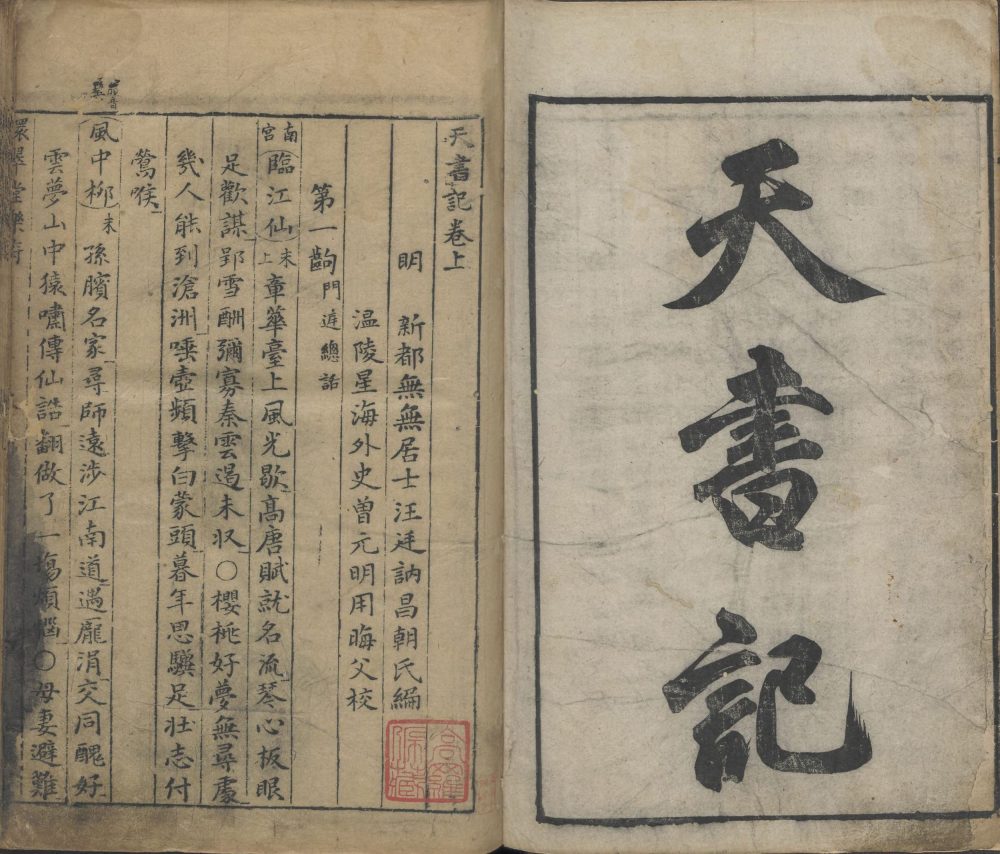 天書記
天書記卷上
明 新都無無居士汪廷訥昌朝氏編
温陵星海外史曾元明用晦父校
第一齣門遮總話
南宮臨江仙末上章華臺上風光歇高唐賦就名流琴心板眼
足歡謀郢雪酬彌寡秦雲遏未収○櫻桃好夢無尋處
幾人能到滄洲唾壺頻擊白蒙頭暮年思驥足壯志付
鶯喉
風中柳末孫臏名家尋師遠涉江南道遇龐涓交同醜好
雲夢山中猿嘯傳仙誥翻做了一場煩惱○母妻避難
環翠堂樂府